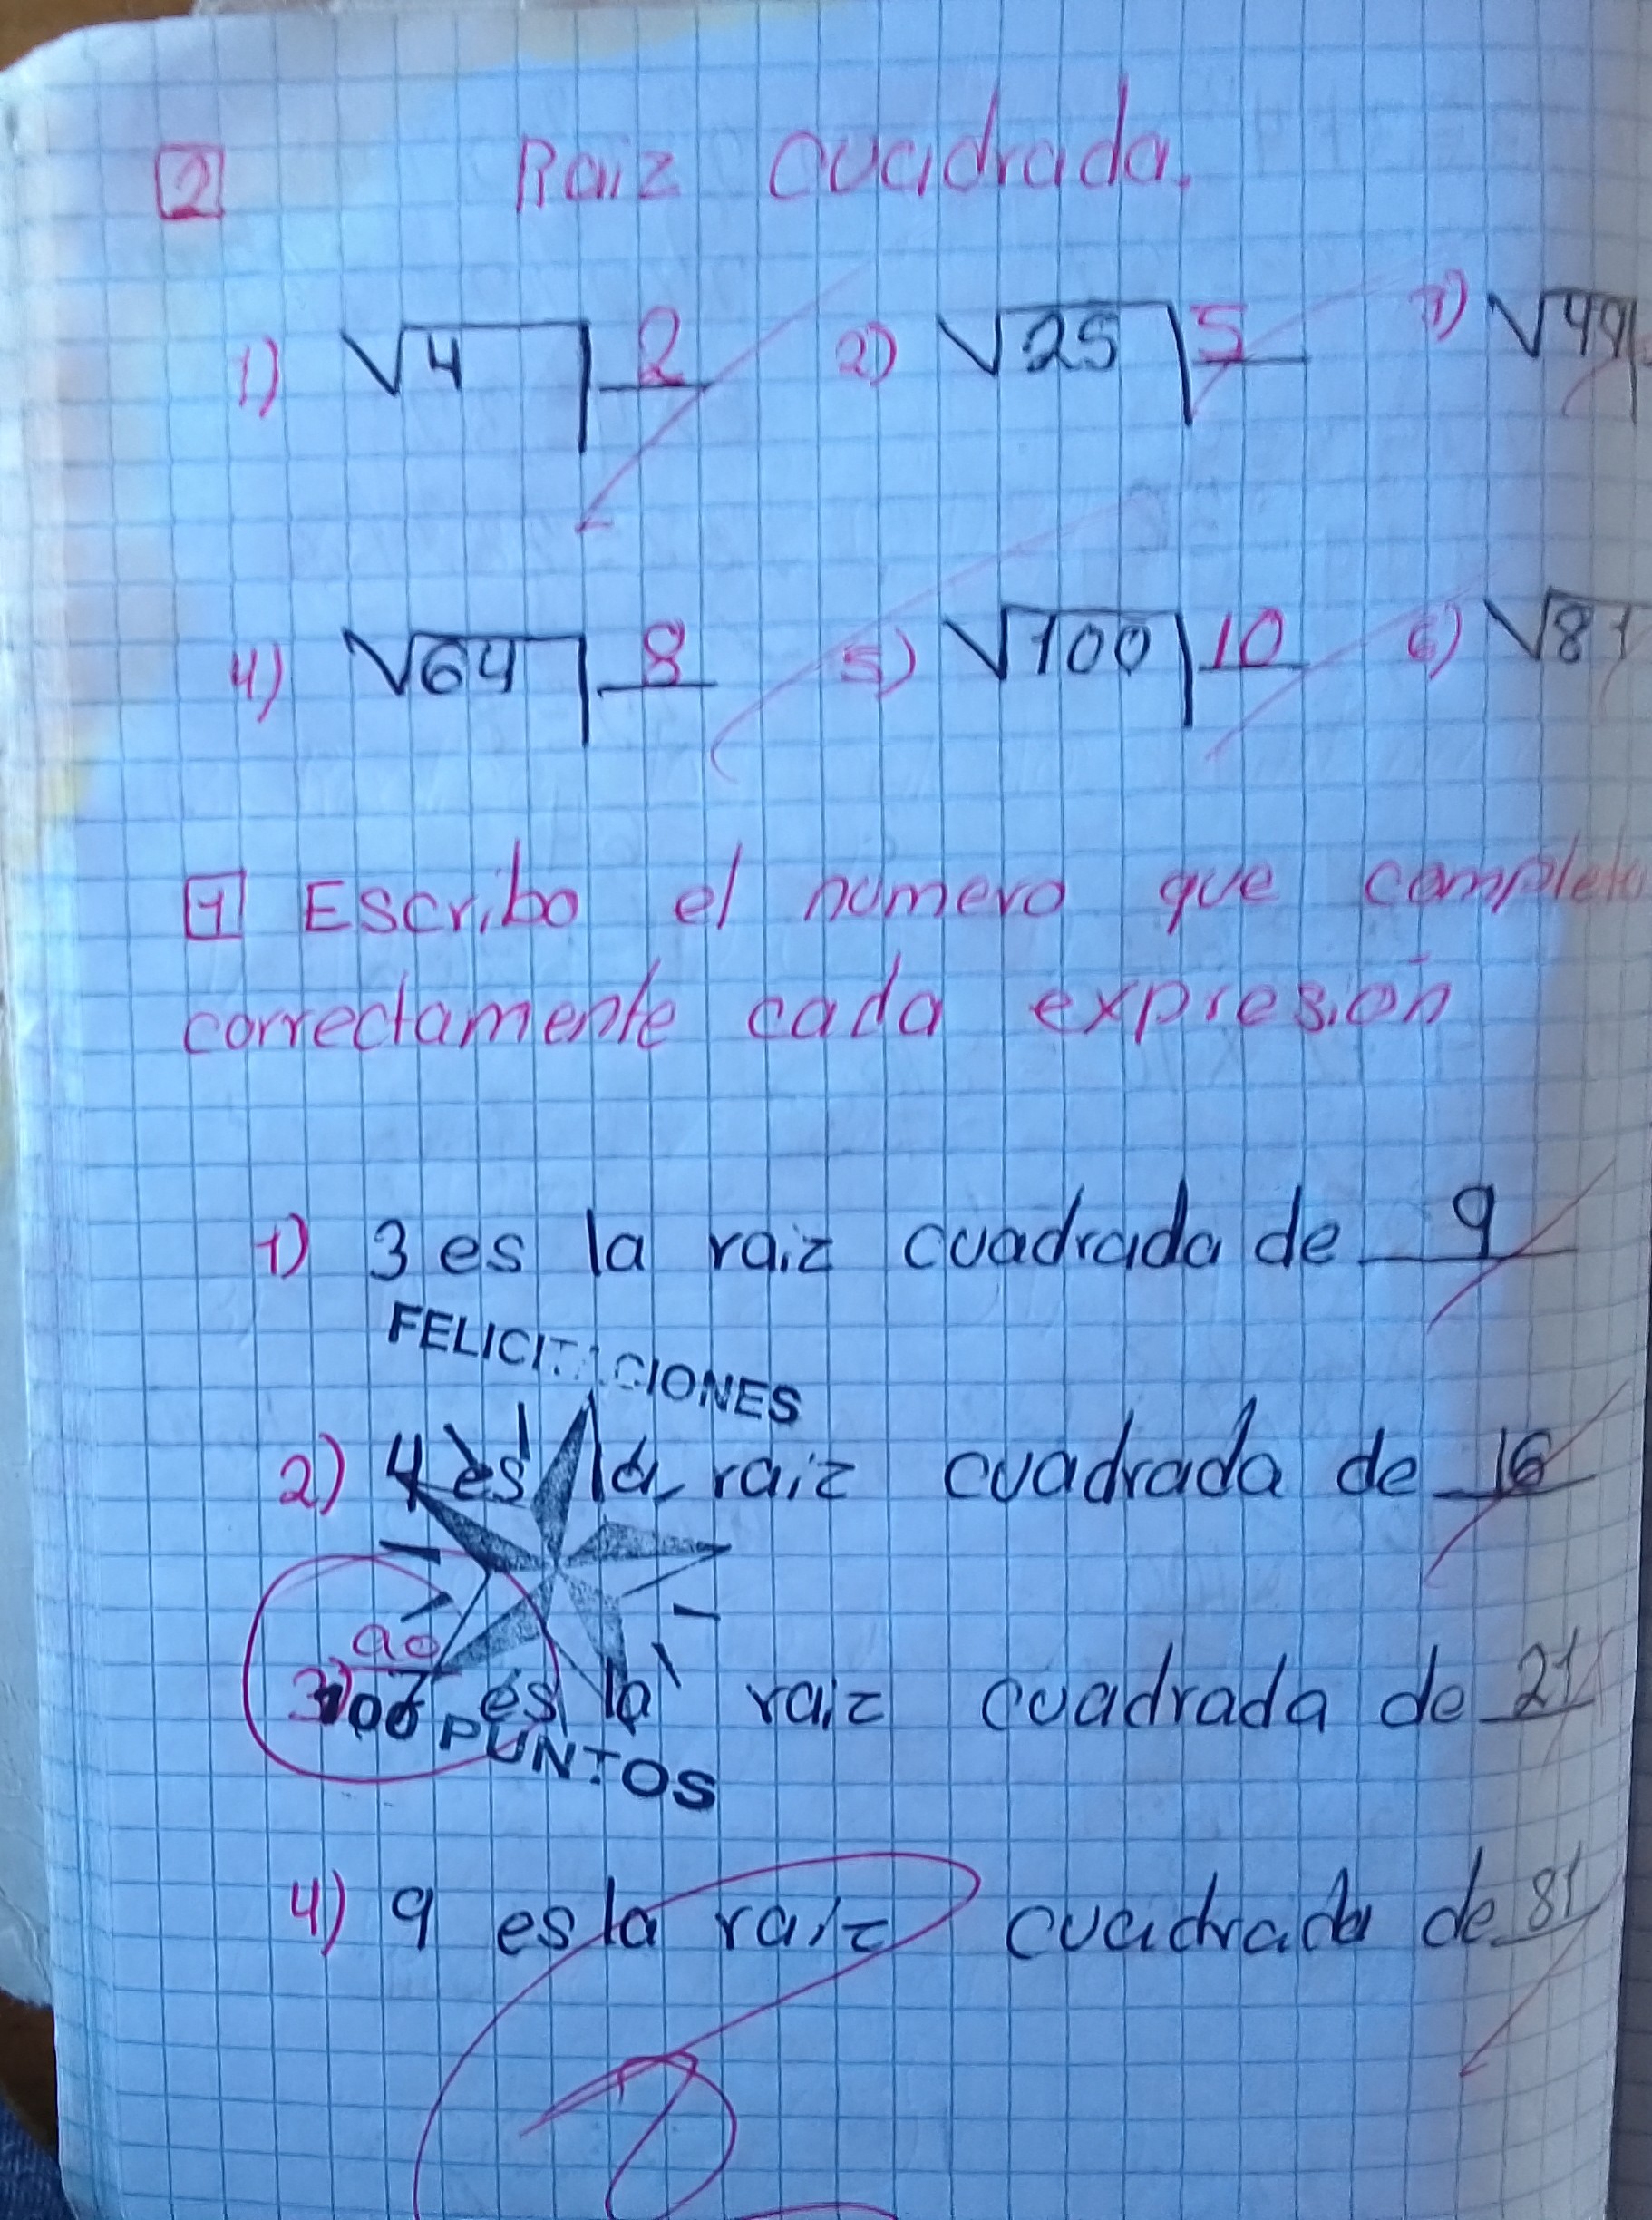 2 Raiz cuadrada.
1) √4 2 2) √25 5 3) √49
4) √64 8 5) √100 10 6) √81
1 Escribo el numero que completa
correctamente cada expresión
1) 3 es la raiz cuadrada de 9
FELICITACIONES
2) 4 es la raiz cuadrada de 16
90
3) es la raiz cuadrada de 21
100 PUNTOS
4) 9 es la raiz cuadrada de 81